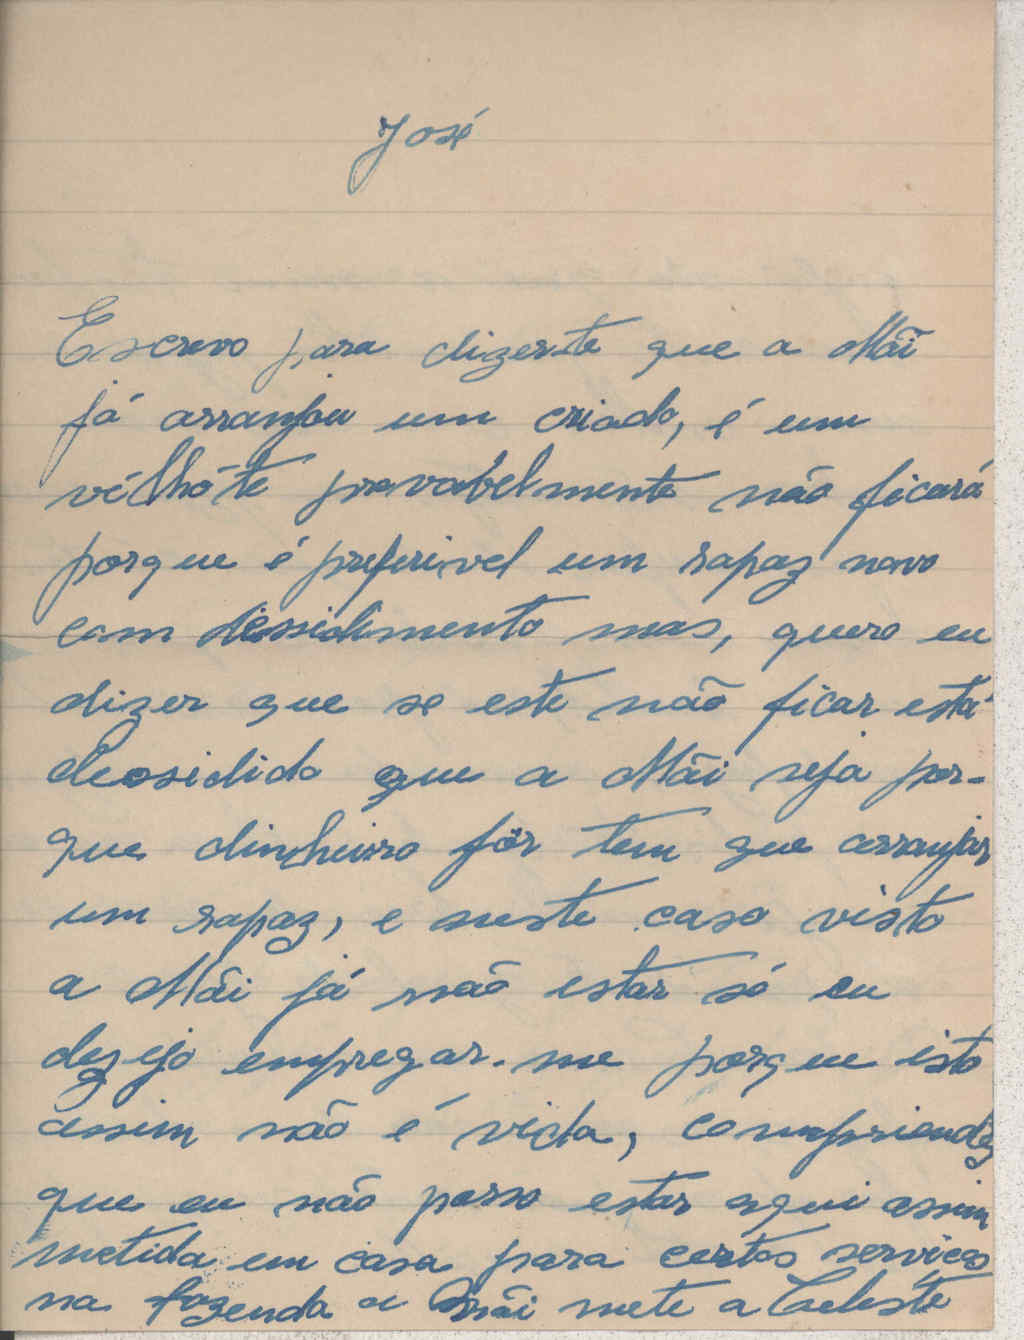 José
Escrevo para dizer-te que a Mãi
já arranjou um criado, é um
vélhóte provabelmente não ficará
porque é preferivel um rapaz novo
com dissidimento mas, quero eu
dizer que se este não ficar está
deosidido que a Mãi seja por-
que dinheiro fôr tem que arranjar
um rapaz, e neste caso visto
a Mãi já não estar só eu
dezejo empregar-me porque isto
assim não é vida, compriendes
que eu não posso estar aqui assim
metida em casa para certos serviços
na fazenda a Mãi mete a Celeste